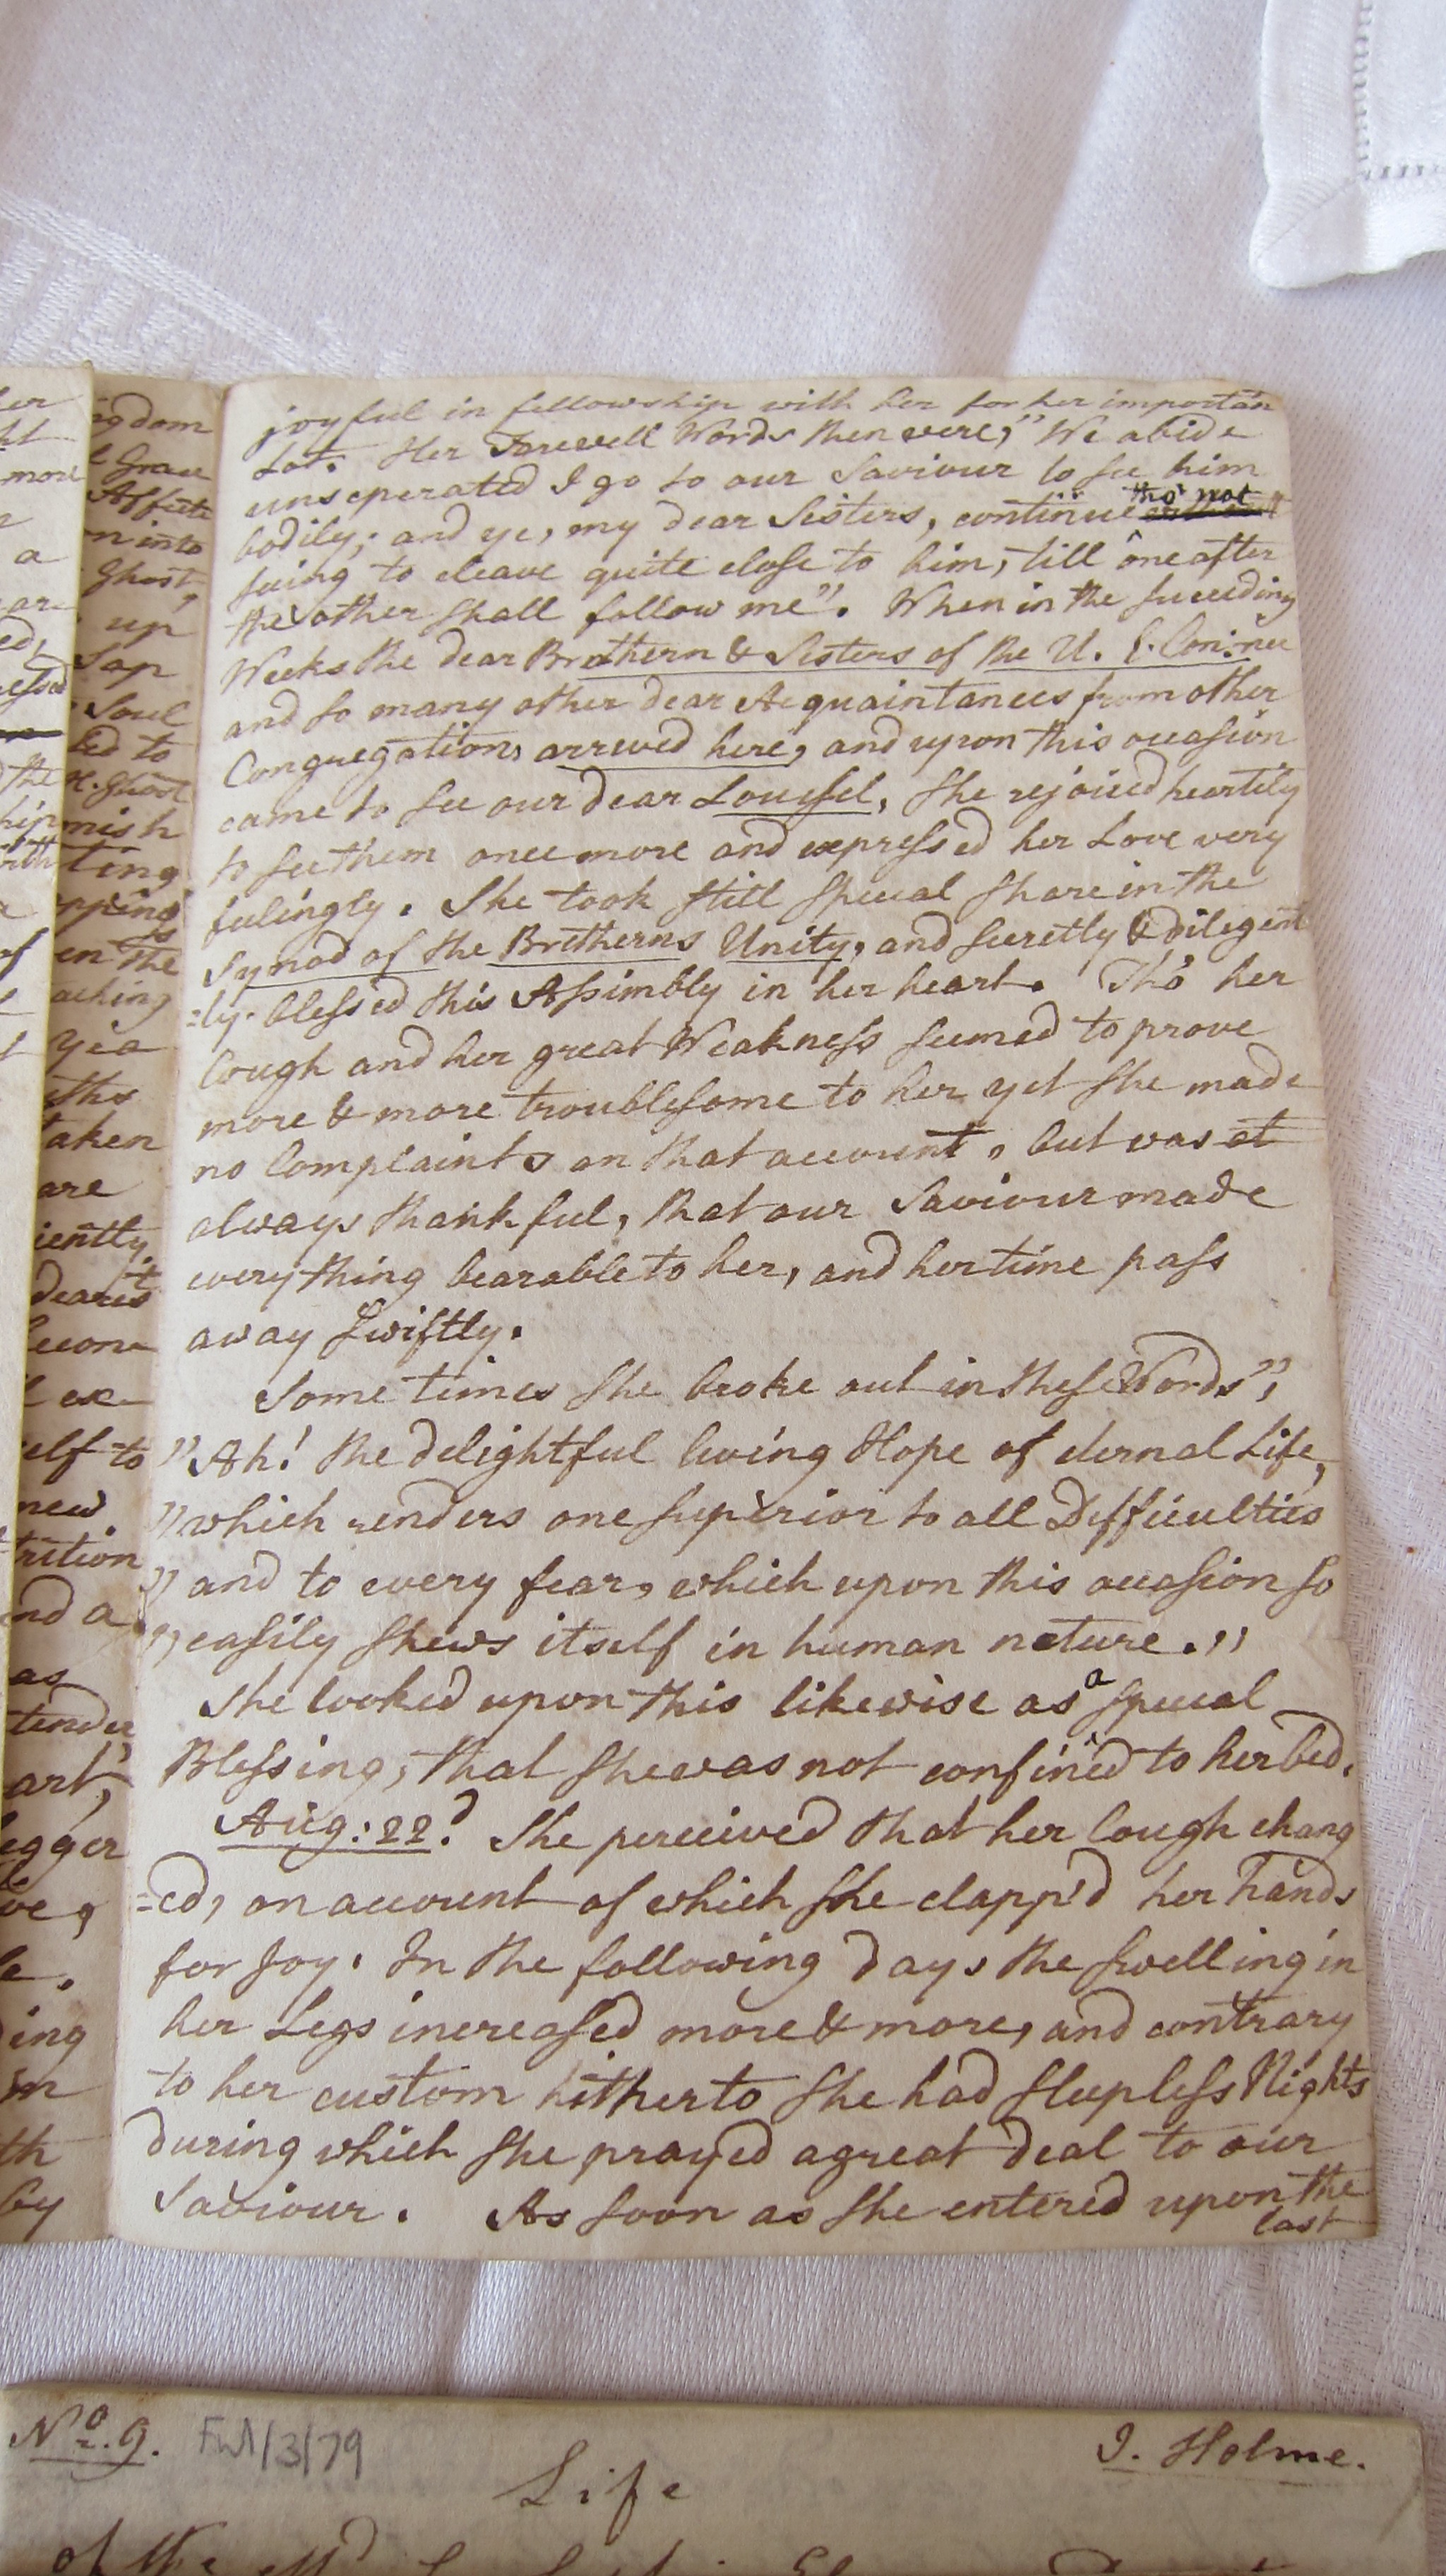 joyful in fellowship with her for her importan
Lot. Her Farewell Words then were, " We abide
unseperated I go to our Saviour to see him
bodily; and ye, my dear Sisters, continue tho' not
seeing to cleave quite close to him, till one after
the other shall follow me". When in the succeeding
Weeks the dear Brethern & Sisters of the U. E.
and so many other dear Acquaintances from other
Congregations arrived here, and upon this occasion
came to see our dear Louisel, she rejoiced heartily
to see them once more and expressed her Love very
feelingly. She took still special share in the
Synod of the Bretherns Unity, and secretly & diligent
=ly blessed this Assembly in her heart. Tho' her
Cough and her great Weakness seemed to prove
more & more troublesome to her yet she made
no Complaints on that account, but was at
always thankful, that our Saviour made
every thing bearable to her, and her time pass
away swiftly.
Some times she broke out in these Words",
"Ah! the delightful living Hope of eternal Life,
"which renders one superior to all Difficulties
"and to every fear, which upon this occasion so
"easily shews itself in human nature."
She looked upon this likewise as a special
Blessing, that she was not confined to her bed.
Aug: 22d. She perceived that her Cough chang
=ed, on account of which she clapp'd her hands
for Joy. In the following days the swelling in
her Legs increased more & more, and contrary
to her custom hitherto she had sleepless Nights
during which she prayed a great deal to our
Saviour. As soon as she entered upon the
last
gdom
Grace
n into
Ghost,
up
Sap
Soul
to
H. Ghost
nish
ting
en the
aching
yea
taken
are
iently
dearest
ex-
elf to
new
nd a
as
tender
art,
ing
th
by
more
a
the
of
No. 9. FW/3/79
I. Holme.
Life
of the